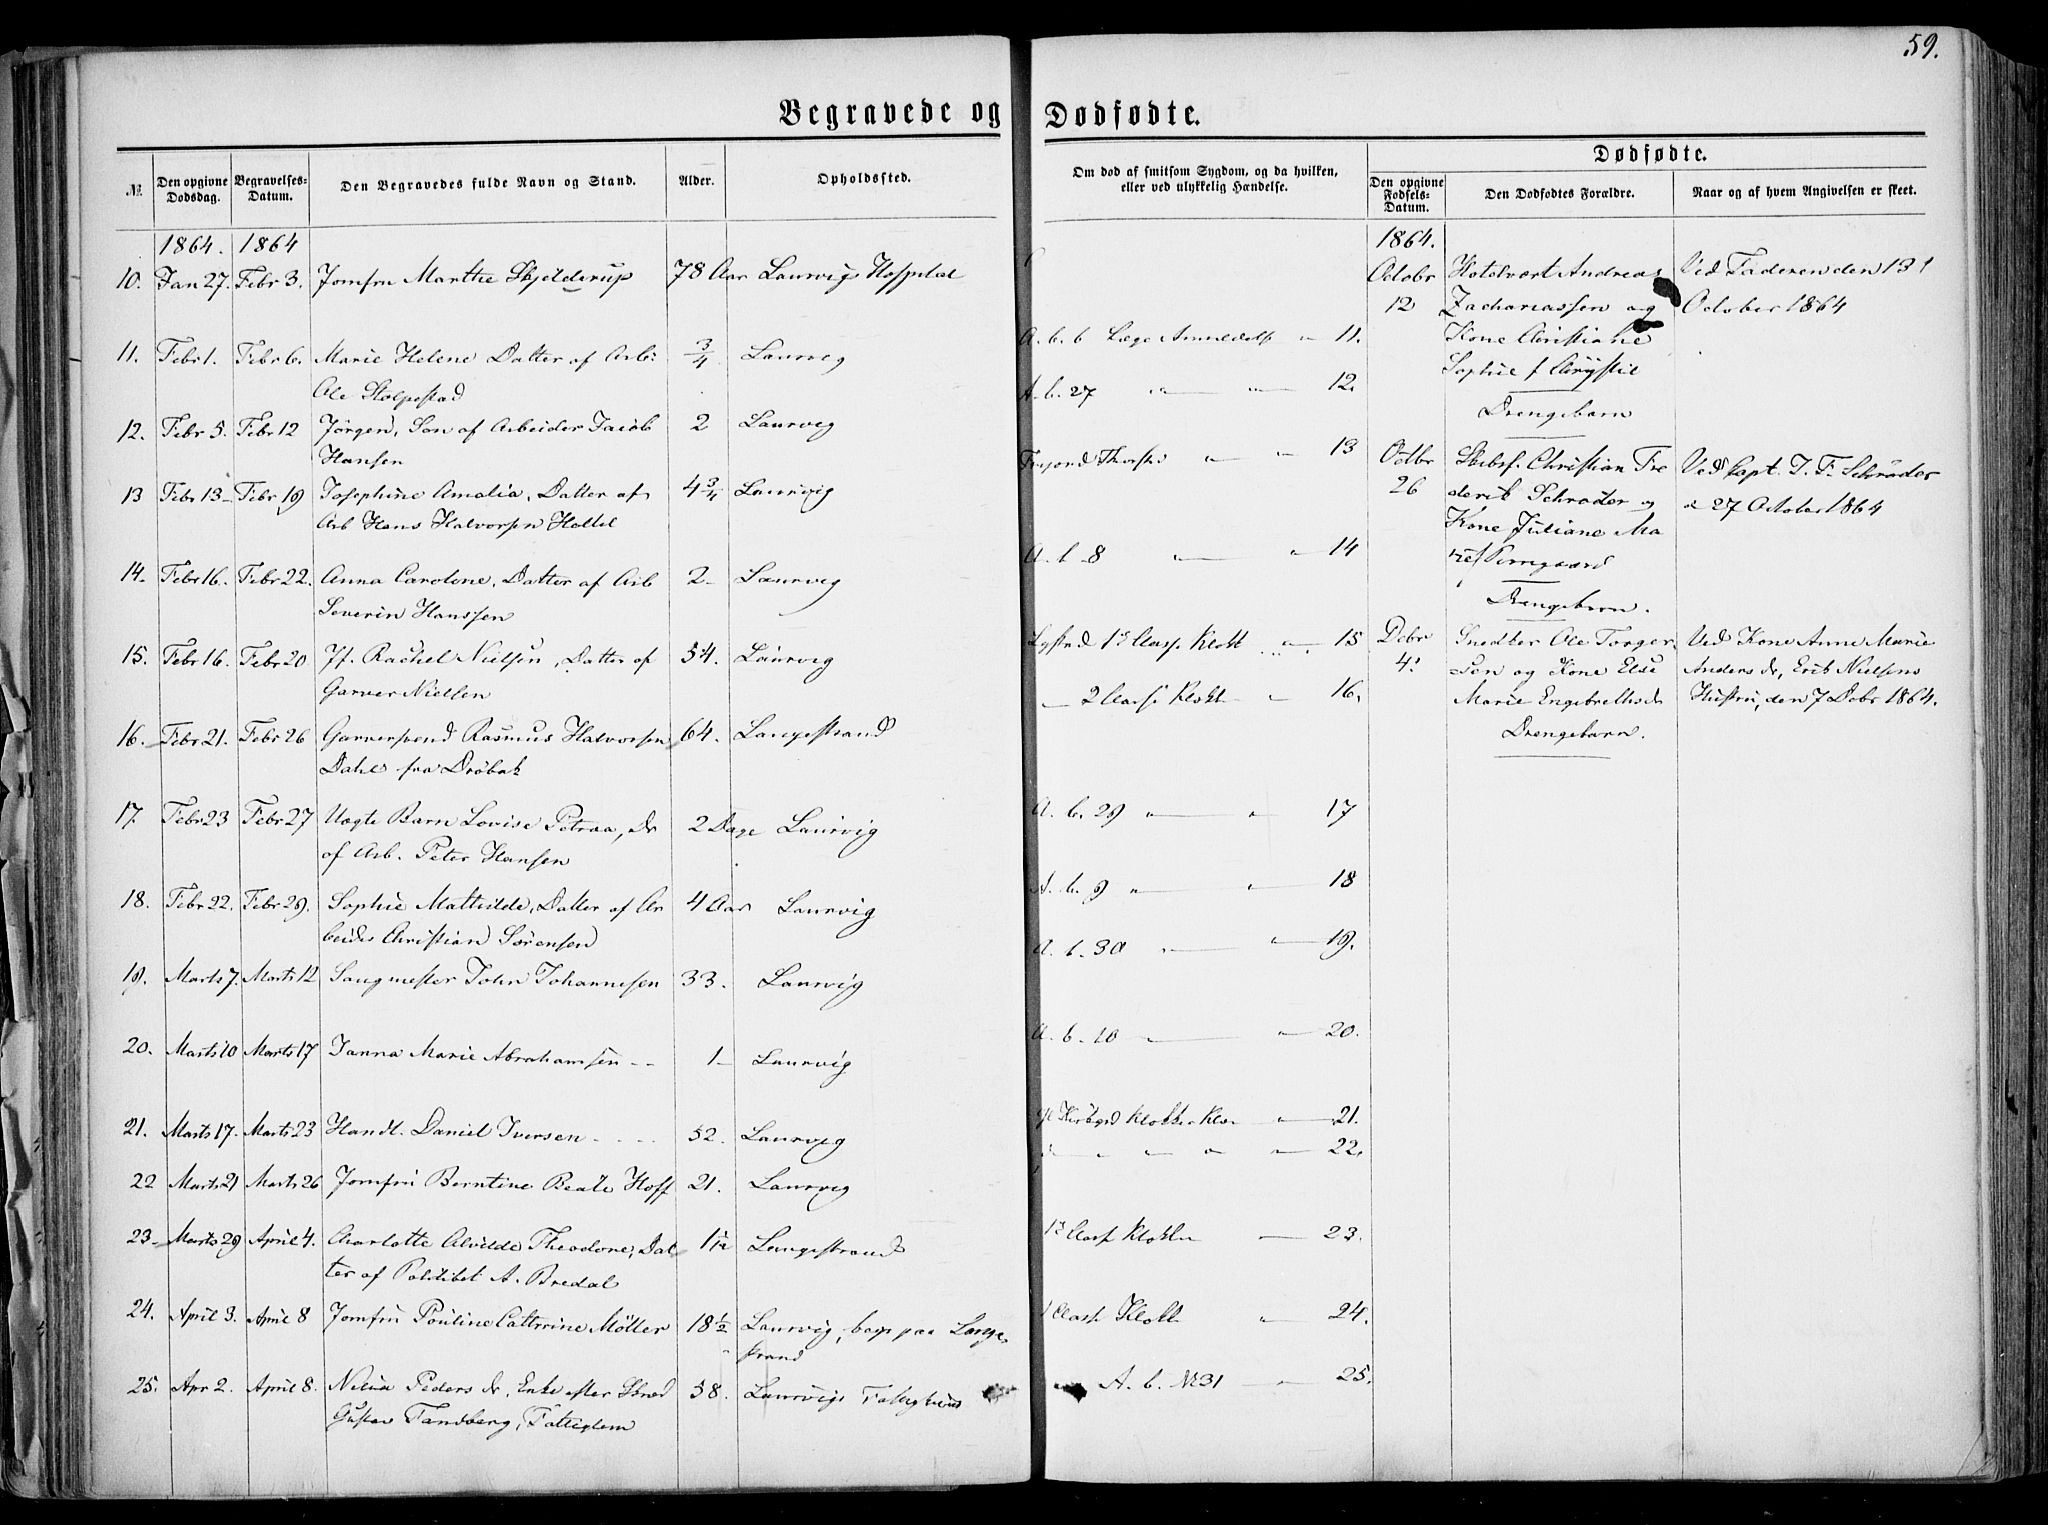 59.
Begravede og Dødfødte.
№
Den opgivne Dødsdag.
Begravelses-Datum.
Den Begravedes fulde Navn og Stand.
Alder.
Opholdssted.
Om død af smitsom Sygdom, og da hvilken,
eller ved ulykkelig Hændelse.
Dødfødte.
Den opgivne Fødsels-Datum.
Den Dødfødtes Forældre.
Naar og af hvem Angivelsen er skeet.
1864. 1864
10. Jan 27. Febr 3. Jomfru Marthe Skjelderup 78 Aar Laurvigs Hospital
11. Febr 1. Febr 6. Marie Helene Datter af Arb: 3/4 Laurvig
Ole Stolpestad
12. Febr 5. Febr 12 Jörgen, Søn af Arbeider Jacob 2 Laurvig
Hansen
13 Febr 13 Febr 19 Josephine Amalia, Datter af 4 3/4 Laurvig
Arb Hans Halvorsen Holtet
14. Febr 16. Febr 22. Anna Carolone, Datter af Arb 2 Laurvig
Severin Hanssen
15. Febr 16. Febr 20 Jf. Rachel Nielsen, Datter af 54. Laurvig
Garver Nielsen
16. Febr 21. Febr 26 Garversvend Rasmus Halvorsen 64. Langestrand
Dahl fra Dröbak
17. Febr 23 Febr 27 Uægte Barn Lovise Petraa, Dr 2 Dage Laurvig
af Arb. Peter Hansen
18. Febr 22. Febr 29. Sophie Mathilde, Datter af Ar 4 Aar Laurvig
beider Christian Sörensen
19. Marts 7. Marts 12 Saugmester John Johannesen 33. Laurvig
20. Marts 10 Marts 17 Janna Marie Abrahamsen 1 Laurvig
21. Marts 17. Marts 23 Handl. Daniel Iversen 52. Laurvig
22 Marts 21 Marts 26 Jomfru Berntine Beate Hoff 21. Laurvig
23 Marts 29 April 4. Charlotte Alvilde Theodore, Dat Langestrand
ter af Politibet A. Bredal
24. April 3. April 8 Jomfru Pouline Cathrine Möller 18 1/2 Laurvig, begr paa Lange
strand
25. Apr 2. April 8. Peders dr, Enke efter 58. Laurvigs Fattighuus
Gustav Tandberg, Fattiglem
A. b. 6 11.
A. b. 27 12.
13
A. b. 8 14
1e Class Klokk 15
2 Class Klokk 16.
A. b. 29 17
A. b. 9 18
A. b. 30 19.
A. b. 10 20.
Klokker 21.
22.
1e Class Klokk 23.
1 Class Klokk 24.
A. b. № 31 25.
1864.
Octobr Andreas Ved Faderen den 13
12 Zachariassen og October 1864
Kone Christiane
Sophie f Chrystie
Drengebarn
Octbr Skibsf. Christian Fre Ved Capt. J. F. Schröder
26 derik Schröder og 27 October 1864
Kone Juliane Ma
rie f
Drengebarn.
Debr Snedker Ole Torger Ved Kone Anne Marie
4. sen og Kone Else Anders dr, Erik Nielsens
Marie Engebrethsdr Hustru, den 7 Debr 1864.
Drengebarn.